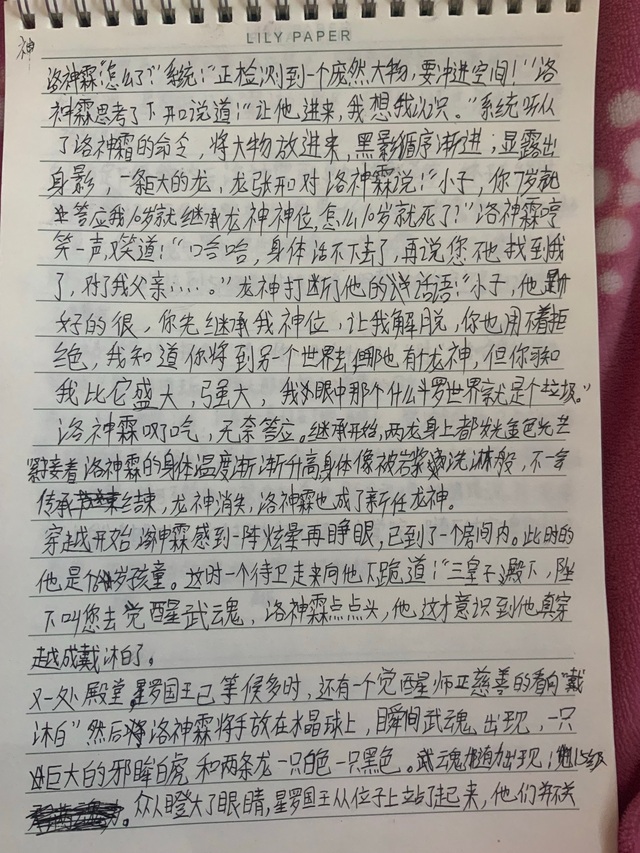 LILY PAPER
神
洛神霖:“怎么了?”系统:“正检测到一个庞然大物,要冲进空间!”洛
神霖思考了下开口说道:“让他进来,我想我认识。”系统听从
了洛神霜的命令,将大物放进来,黑影循序渐进;显露出
身影,一条巨大的龙,龙张开口对洛神霖说:“小子,你7岁就
答应我10岁就继承龙神神位,怎么10岁就死了?”洛神霖哼
笑一声,又笑道:“口合哈,身体活不下去了,再说您不也找到我
了,对了我父亲……。”龙神打断了他的说话语:“小子,他
好的很,你先继承我神位,让我解脱,你也用不着拒
绝,我知道你将到另一个世界去,那也有龙神,但你要知
我比它盛大,强大,我眼中那个什么斗罗世界就是个垃圾。”
洛神霖叹了口气,无奈答应。继承开始,两龙身上都发光金色光芒
紧接着洛神霖的身体温度渐渐升高,身体像被岩浆洗淋般,不一会
传承结束,龙神消失,洛神霖也成了新任龙神。
穿越开始,洛神霖感到一阵炫晕再睁眼,已到了一个房间内。此时的
他是6岁孩童。这时一个待卫走来向他下跪道:“三皇子殿下,陛
下叫您去觉醒武魂,洛神霖点点头,他这才意识到他真穿
越成戴沐白了。
又一处殿堂,星罗国王已等候多时,还有一个觉醒师正慈善的看向“戴
沐白”然后洛神霖将手放在水晶球上,瞬间武魂出现,一只
巨大的邪眸白虎和两条龙一只白色一只黑色。武魂出现,15级
。众人瞪大了眼睛,星罗国王从位子上站了起来,他们并不关